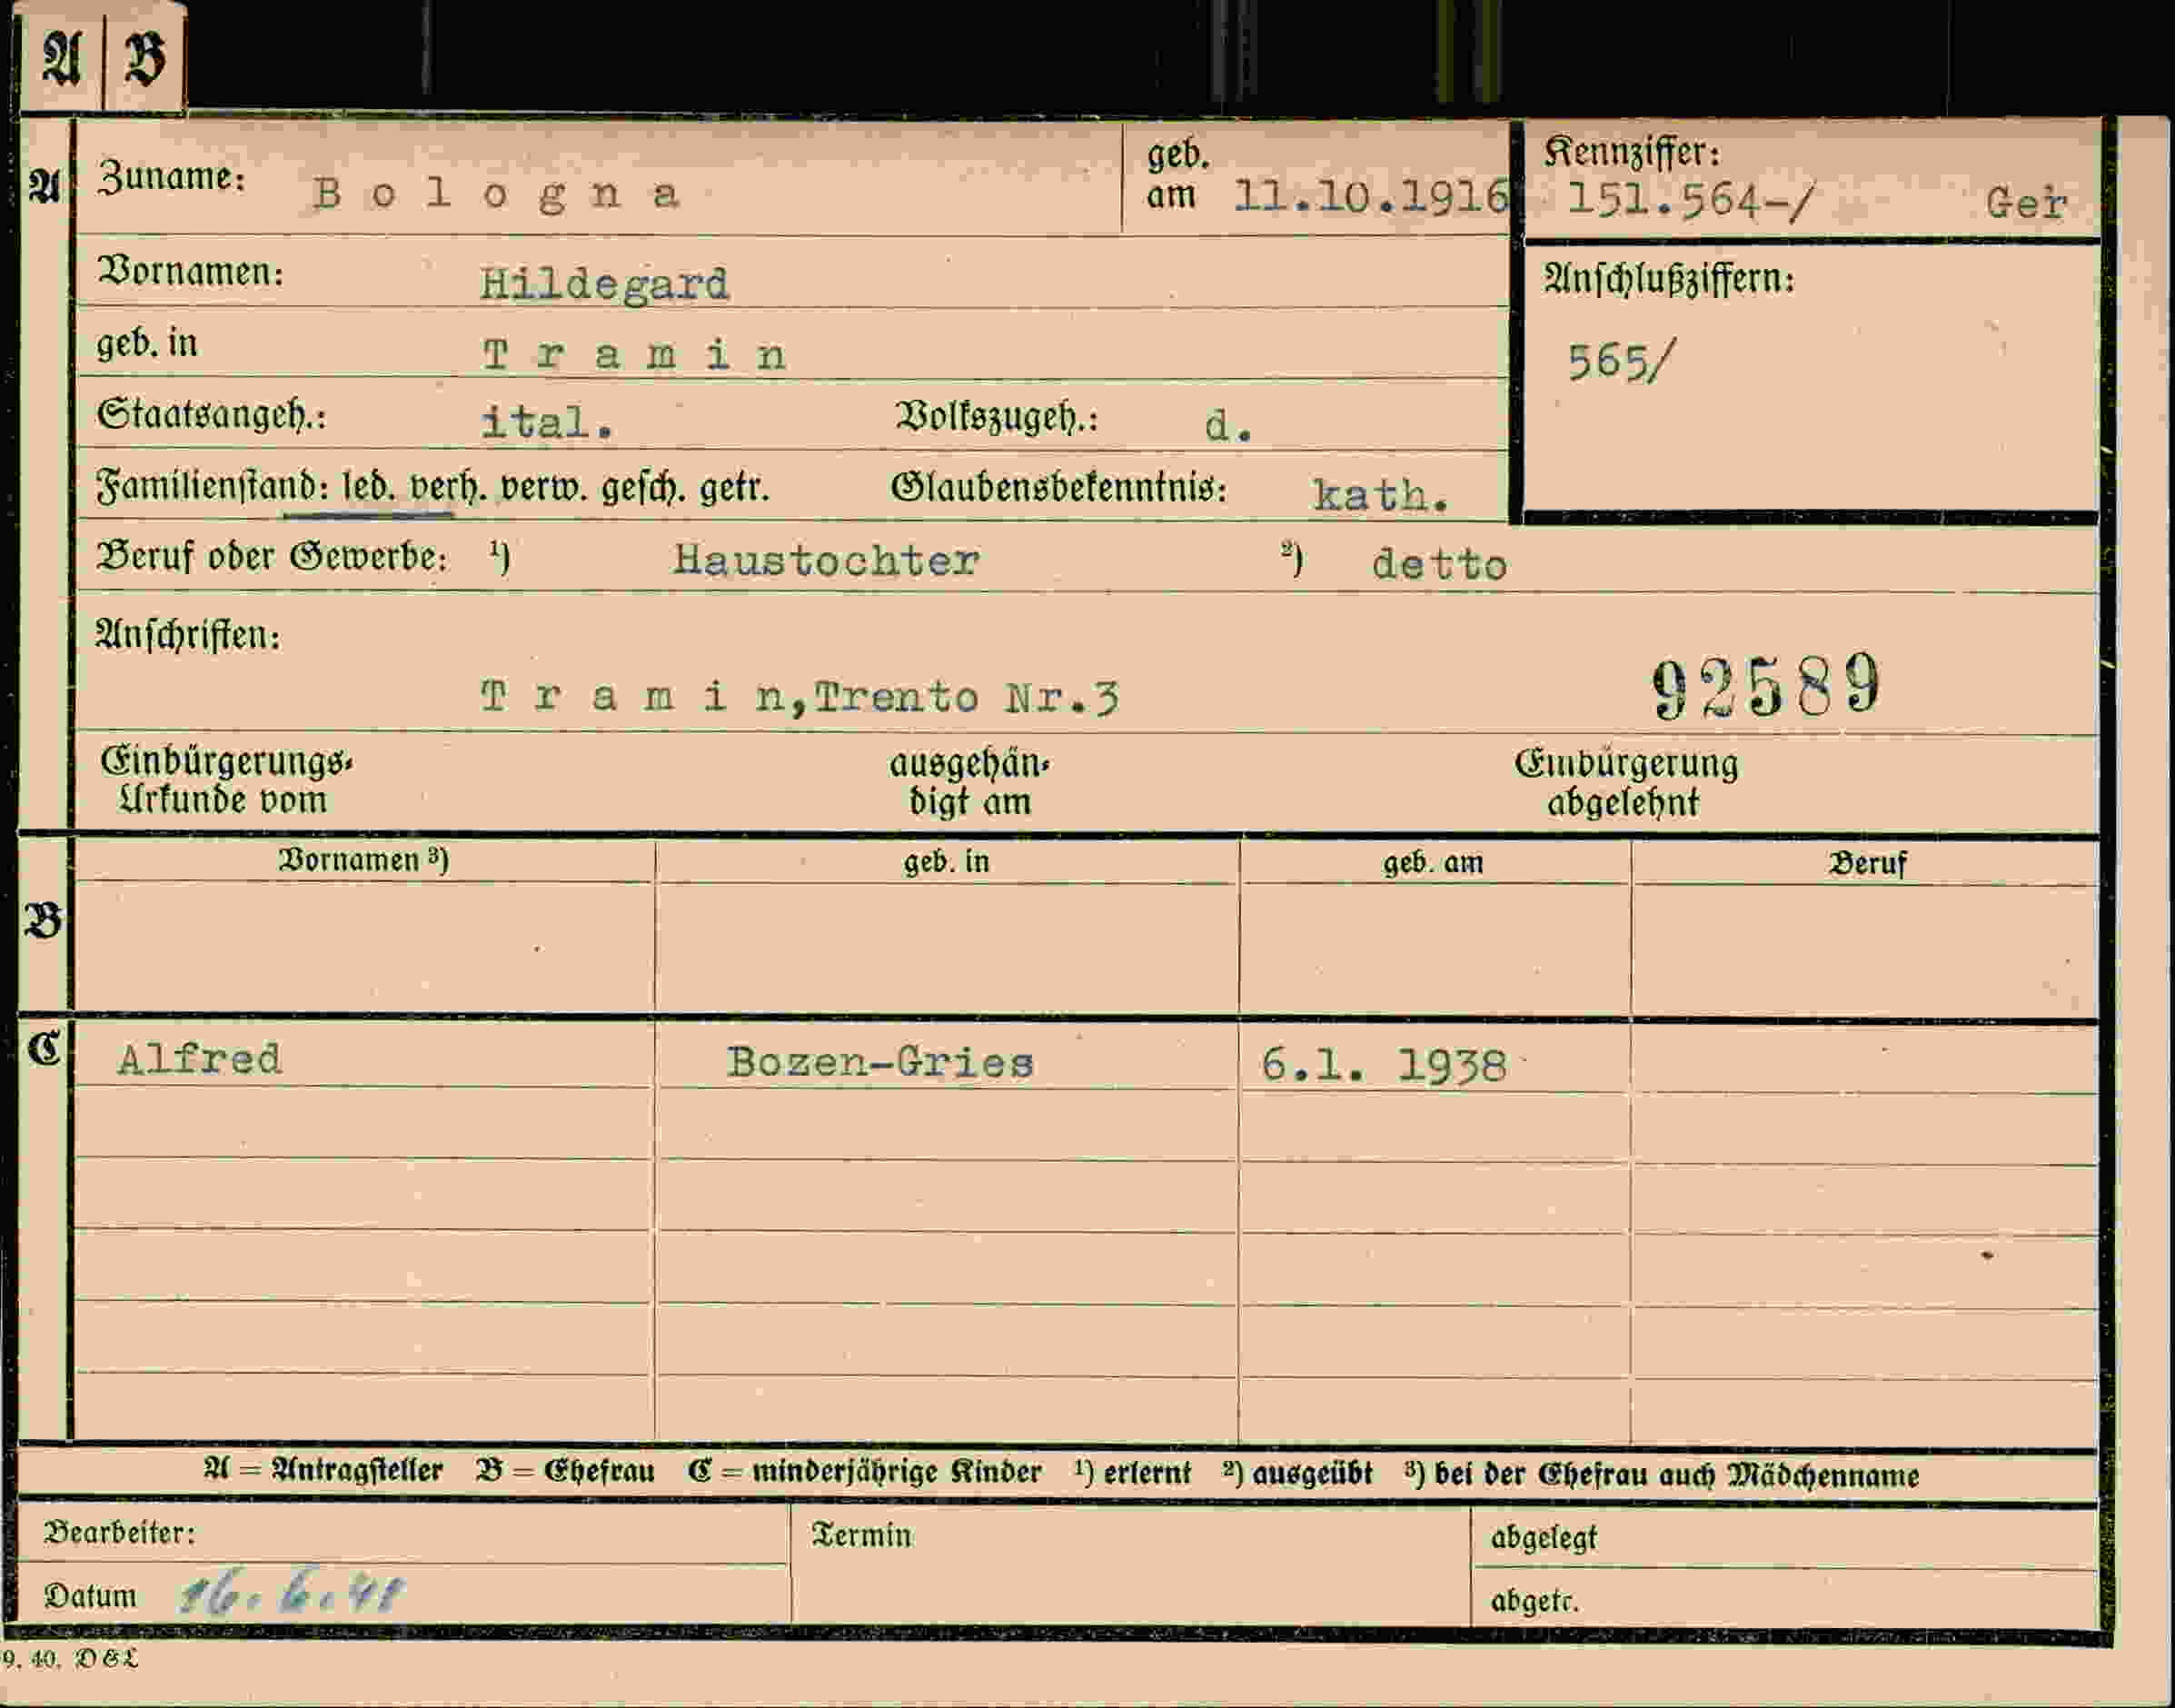 A B
A Zuname: Bologna geb. am 11.10.1916 Kennziffer: 151.564-/ Ger
Vornamen: Hildegard Anschlußziffern:
geb. in Tramin 565/
Staatsangeh.: ital. Volkszugeh.: d.
Familienstand: led. verh. verw. gesch. getr. Glaubensbekenntnis: kath.
Beruf oder Gewerbe: ¹) Haustochter ²) detto
Anschriften:
Tramin,Trento Nr.3 92589
Einbürgerungs- ausgehän- Einbürgerung
Urkunde vom digt am abgelehnt
Vornamen ³) geb. in geb. am Beruf
B
C Alfred Bozen-Gries 6.1. 1938
A = Antragsteller B = Ehefrau C = minderjährige Kinder ¹) erlernt ²) ausgeübt ³) bei der Ehefrau auch Mädchenname
Bearbeiter: Termin abgelegt
Datum 16.6.41 abgetr.
9. 40. D&L